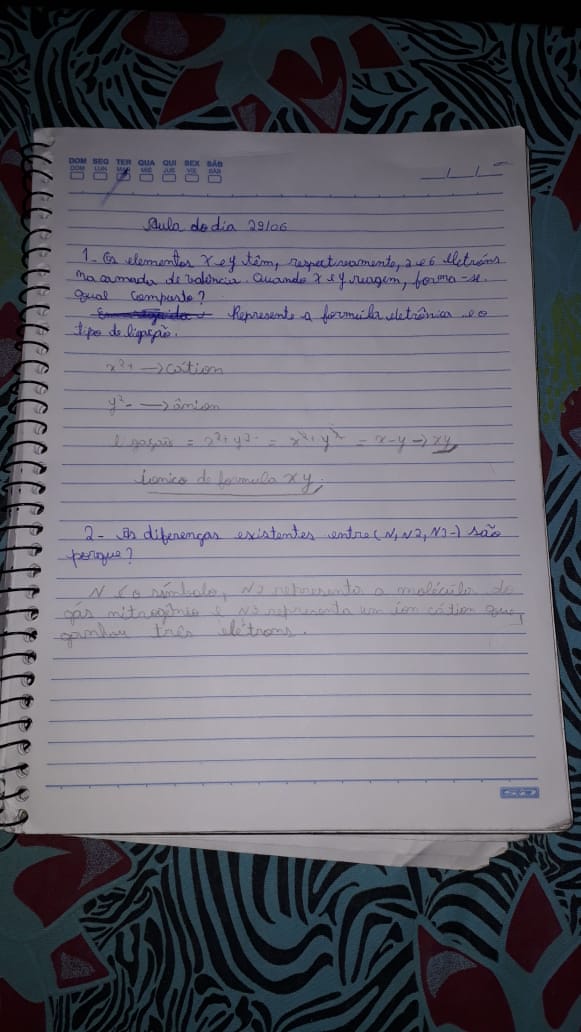 DOM SEG TER QUA QUI SEX SÁB
DOM LUN MAR MIE JUE VIE SAB
Aula do dia 29/06
1- Os elementos X e y têm, respectivamente, 2 e 6 eletróns
na camada de valência. Quando X e y reagem, forma-se
qual composto?
Represente a formula eletrônica e o
tipo de ligação.
x²+ —> cátion
y²- —> ânion
Ligação = x²+y²- = x²+y² = x-y -> xy
Iônico de formula xy,
2- As diferenças existentes entre (N, N2, N3-) são
porque?
N é o símbolo, N2 representa a molécula do
gás nitrogênio e N3 representa um íon cátion que,
ganhou três elétrons.
SD